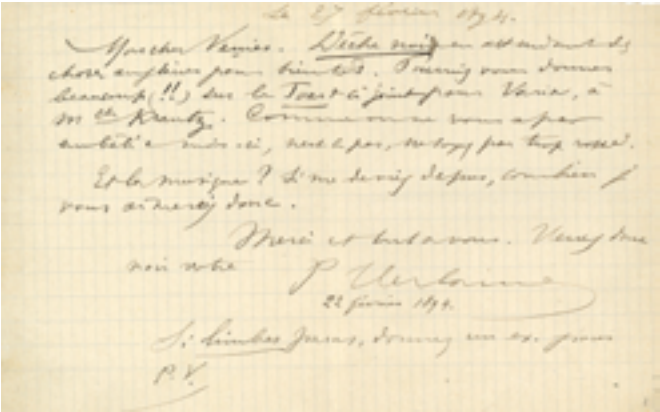 Le 27 février 1894.
Mon cher Vanier. Dèche noire en attendant des
choses meilleures pour bientôt. Pourriez vous donner
beaucoup (!!) sur le Toast ci joint pour Varia, à
Mlle Krantz. Comme on ne vous a pas
embêté ce mois-ci, n'est-ce pas, ne soyez pas trop rosse.
Et la musique ? Si me devez de plus, combien je
vous aimerais donc.
Merci et tout à vous. Venez donc
voir votre P Verlaine
22 février 1894.
Si limbes parus, donnez un ex. pour
P. V.